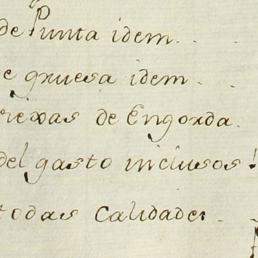 de Punta idem . .
e gruesa idem . .
riexas de Engorda .
del gasto inclusos
todas calidades .